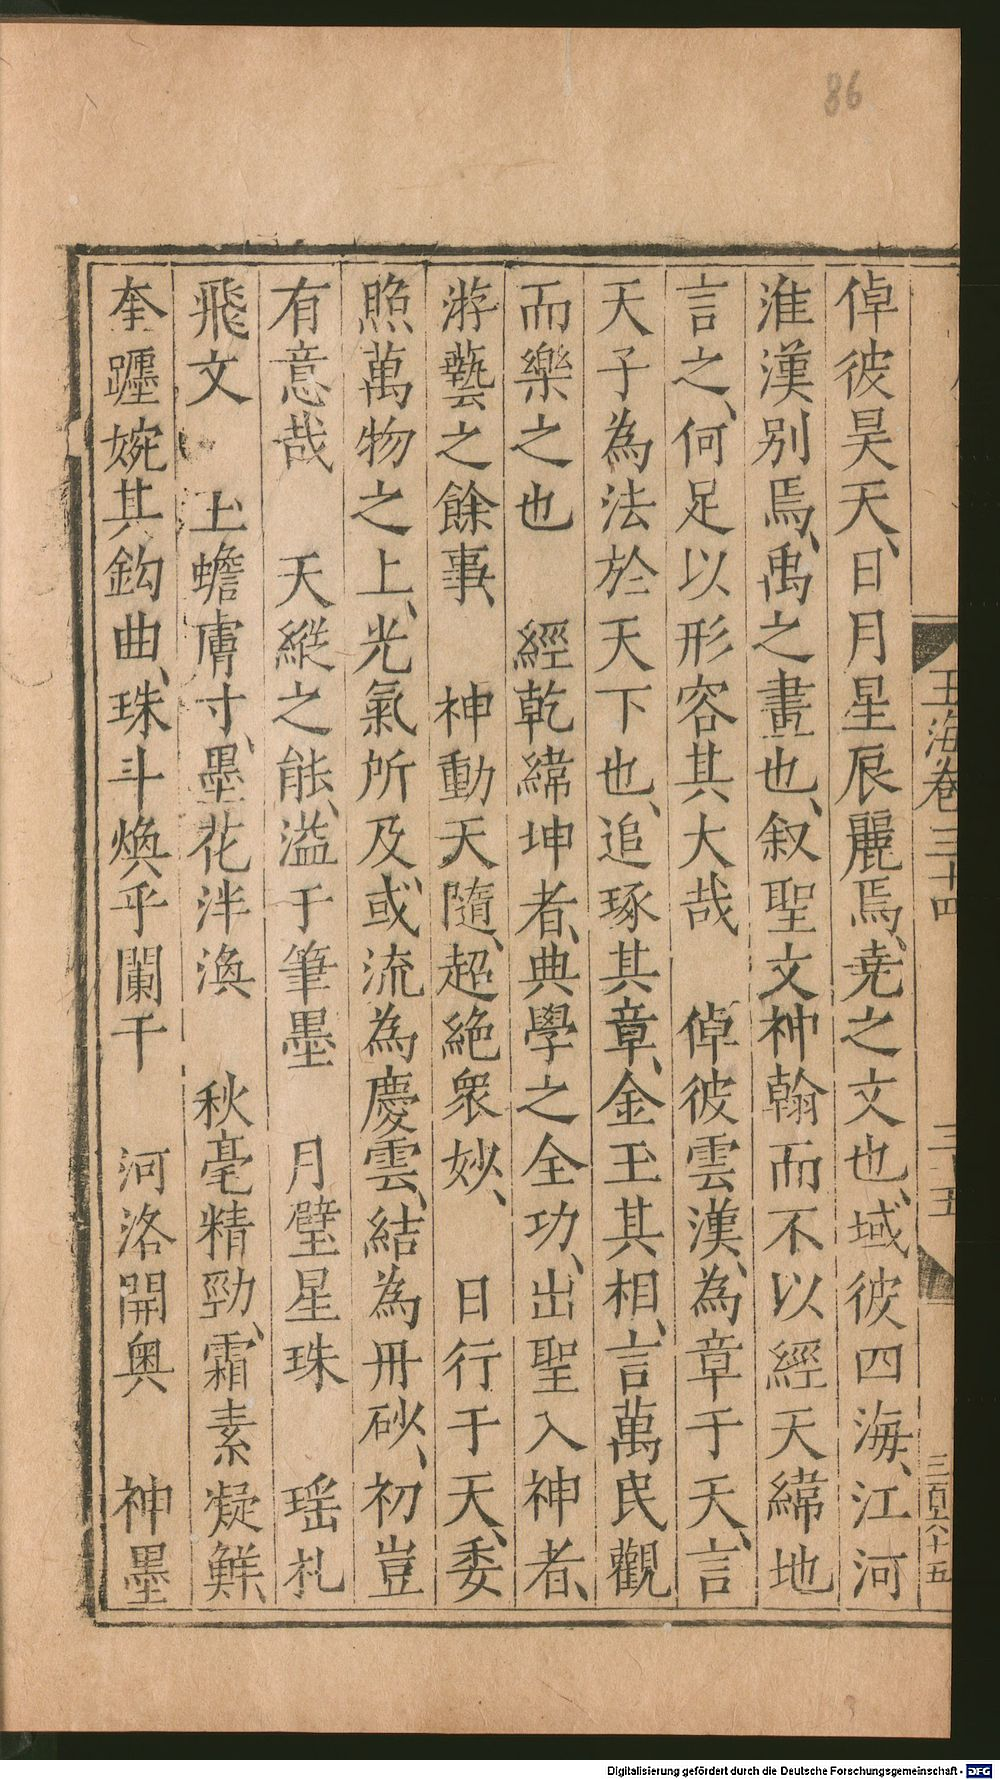 86
玉海卷三十四
三十五
三百五六十五
倬彼昊天、日月星辰麗焉、尭之文也、域彼四海、江河
淮漢别焉、禹之畫也、叙聖文神翰而不以經天緯地
言之、何足以形容其大哉　倬彼雲漢、為章于天、言
天子為法於天下也、追琢其章、金玉其相、言萬民觀
而樂之也　經乾緯坤者、典學之全功、出聖入神者、
游藝之餘事、　神動天隨、超絶衆妙、　日行于天、委
照萬物之上、光氣所及、或流為慶雲、結為丹砂、初豈
有意哉　天縱之能、溢于筆墨　月璧星珠　瑶札
飛文　玉蟾膚寸、墨花泮渙　秋毫精勁、霜素凝鮮
奎躔婉其鈎曲、珠斗煥乎闌干　河洛開奥　神墨
Digitalisierung gefördert durch die Deutsche Forschungsgemeinschaft - DFG